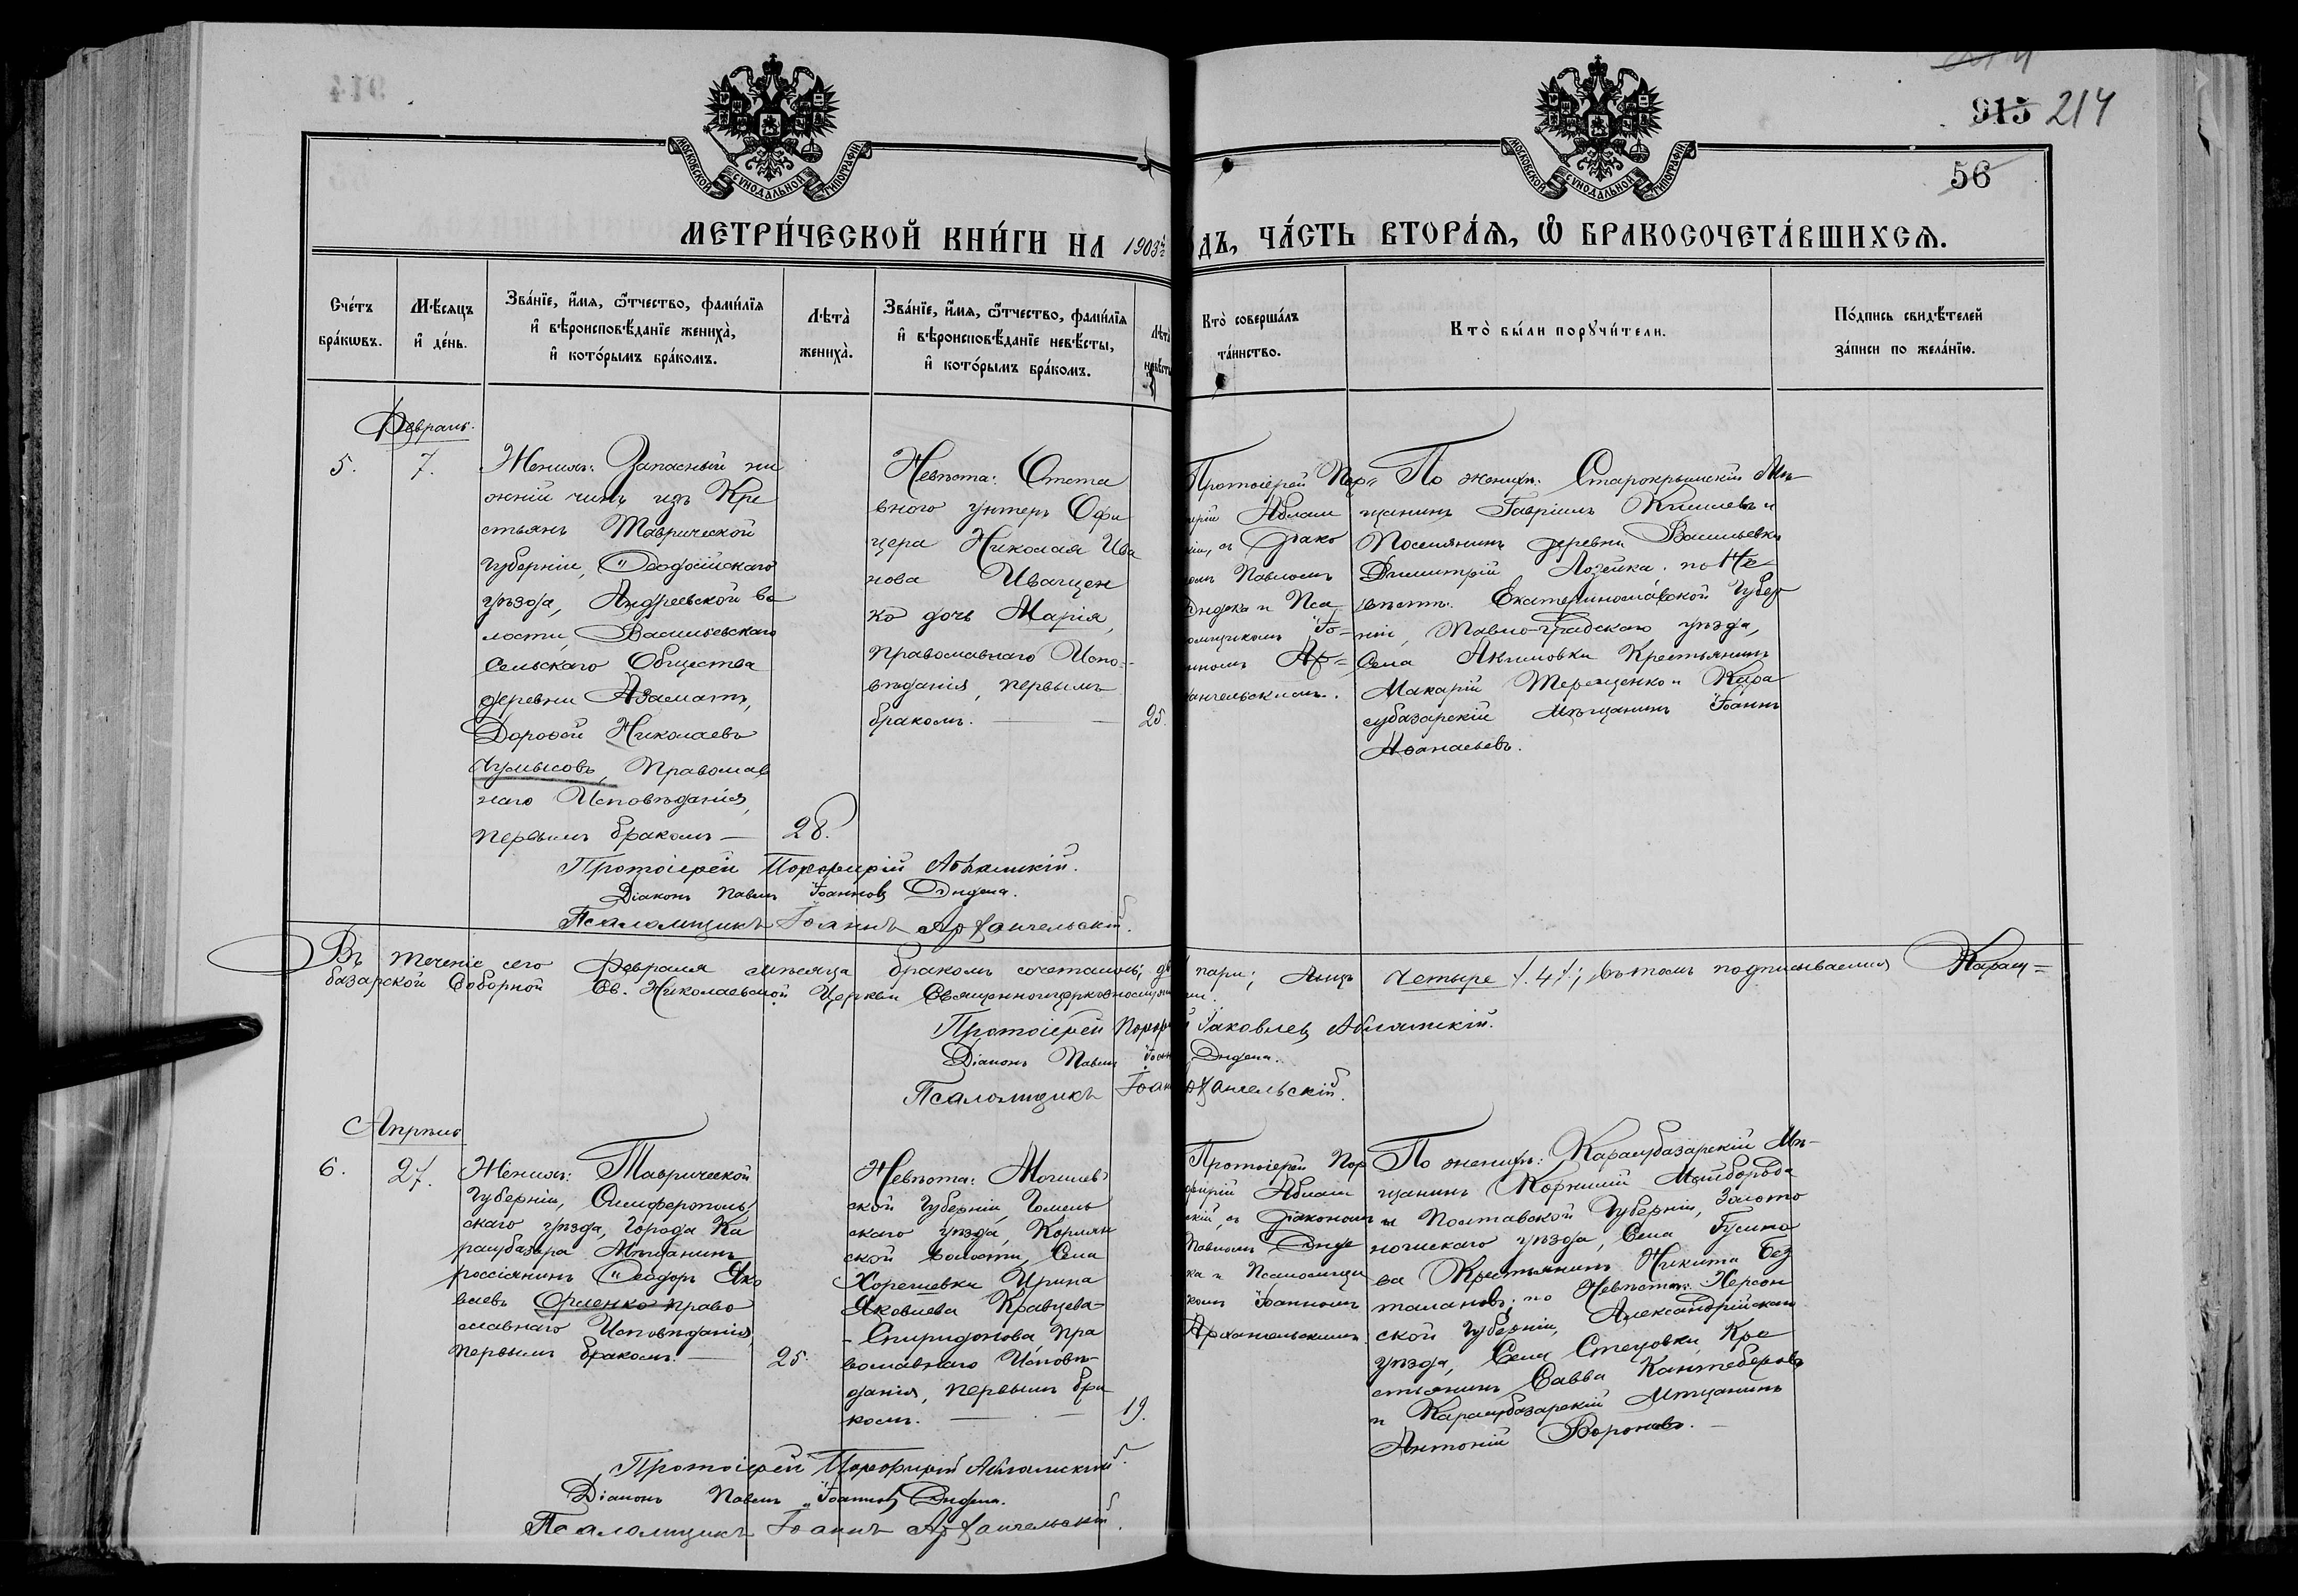 914
915 214
56
МОСКОВСКОЙ СѴНОДАЛЬНОЙ ТИПОГРАФІИ
МОСКОВСКОЙ СѴНОДАЛЬНОЙ ТИПОГРАФІИ
МЕТРИ́ЧЕСКОЙ КНИ́ГИ НА 1903й
дъ, ЧА́СТЬ ВТОРА́Ѧ, Ѽ БРАКОСОЧЕТА́ВШИХСѦ.
Сче́тъ бра́кѡвъ.
Мѣ́сяцъ и҆ де́нь.
Зва́нїе, и҆́мя, ѻ҆́тчество, фами́лїя
и҆ вѣроисповѣ́данїе жениха̀,
и҆ кото́рымъ бра́комъ.
Лѣта̀ жениха̀.
Зва́нїе, и҆́мя, ѻ҆́тчество, фами́лїя
и҆ вѣроисповѣ́данїе невѣ́сты,
и҆ кото́рымъ бра́комъ.
Лѣта̀
невѣсты
Кто̀ соверша́лъ та́инство.
Кто̀ бы́ли порꙋчи́тели.
По́дпись свидѣ́телей
за́писи по жела́нїю.
Февраль.
5.
7.
Женихъ: Запасный ни
жній чинъ изъ Кре
стьянъ Таврической
Губерніи, Ѳеодосійскаго
уѣзда, Андреевской во
лости, Васильевскаго
Сельскаго Общества
деревни Азаматъ,
Дороѳей Николаевъ
Чумысовъ, Православ
наго Исповѣданія,
первымъ бракомъ —
28.
Невѣста: Отста
вного унтеръ Офи
цера Николая Ива
нова Иващен
ко дочь Марія,
Православнаго Испо-
вѣданія, первымъ
бракомъ. —
25.
Протоіерей Пор=
ирій Аблам
кій, съ Діако
омъ Павломъ
Дидека и Пса
омщикомъ Іо-
нномъ Ар=
хангельскимъ.
По женихѣ: Старокрымскій Мѣ-
щанинъ Гавріилъ Кишлевъ и
Поселянинъ деревни Васильевки
Димитрій Лозейка. по Не
вѣстѣ: Екатеринославской Губер
ніи, Павло-градскаго уѣзда,
Села Акимовки Крестьянинъ
Макарій Терещенко и Кара
субазарскій мѣщанинъ Іоаннъ
Аѳанасьевъ.
Протоіерей Порфирій Абламскій.
Діаконъ Павелъ Іоанновъ Дидека.
Псаломщикъ Іоаннъ Архангельскій.
Въ теченіе сего Февраля мѣсяца бракомъ сочеталось; дв пары; Лицъ четыре /.4/.; въ томъ подписываемся Карасу=
базарской Соборной Св. Николаевской Церкви Священноцерковнослужи ли.
Протоіерей Порфи й Іаковлевъ Абламскій.
Діаконъ Павелъ Іоан Дидека.
Псаломщикъ Іоан Архангельскій.
Апрѣль
6.
27.
Женихъ: Таврической
Губерніи, Симферополь
скаго уѣзда, города Ка
расубазара Мѣщанинъ
россіянинъ Ѳеодоръ Яко
влевъ Орленко право
славнаго Исповѣданія,
первымъ бракомъ. —
25.
Невѣста: Могилев
ской Губерніи, Гомель
скаго уѣзда, Кормян
ской Волости, Села
Хорошевки Ирина
Яковлева Кравцева-
- Спиридонова Пра
вославнаго Исповѣ-
данія, первымъ бра
комъ. —
19.
Протоіерей Пор
фирій Аблам
скій, съ Діакономъ
Павломъ Диде
ка и Псаломщи
комъ Іоанномъ
Архангельскимъ
По женихѣ: Карасубазарскій Мѣ-
щанинъ Корнилій Майборода
и Полтавской Губерніи, Золото
ношскаго уѣзда, Села
ва Крестьянинъ Никита Без
талановъ; по Невѣстѣ: Херсон
ской Губерніи, Александрійскаго
уѣзда, Села Стецовки, Кре
стьянинъ Савва Кантеберовъ
и Карасубазарскій Мѣщанинъ
Антоній Вороновъ. —
Протоіерей Порфирій Абламскій.
Діаконъ Павелъ Іоанновъ Дидека.
Псаломщикъ Іоаннъ Архангельскій.